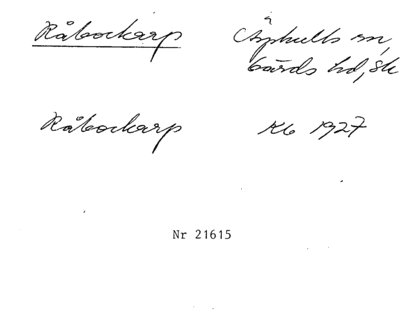 Råbockarp
Äsphults sn,
Gärds hd, Sk
Råbockarp Kb 1927
Nr 21615